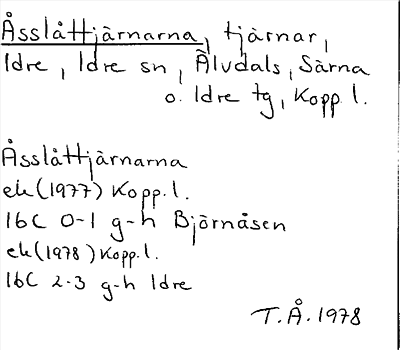 Åsslåttjärnarna, tjärnar,
Idre, Idre sn, Älvdals, Särna
o. Idre tg, Kopp. l.
Åsslåttjärnarna
ek (1977) Kopp. l.
16C 0-1 g-h Björnåsen
ek (1978) Kopp. l.
16C 2-3 g-h Idre
T. Å. 1978